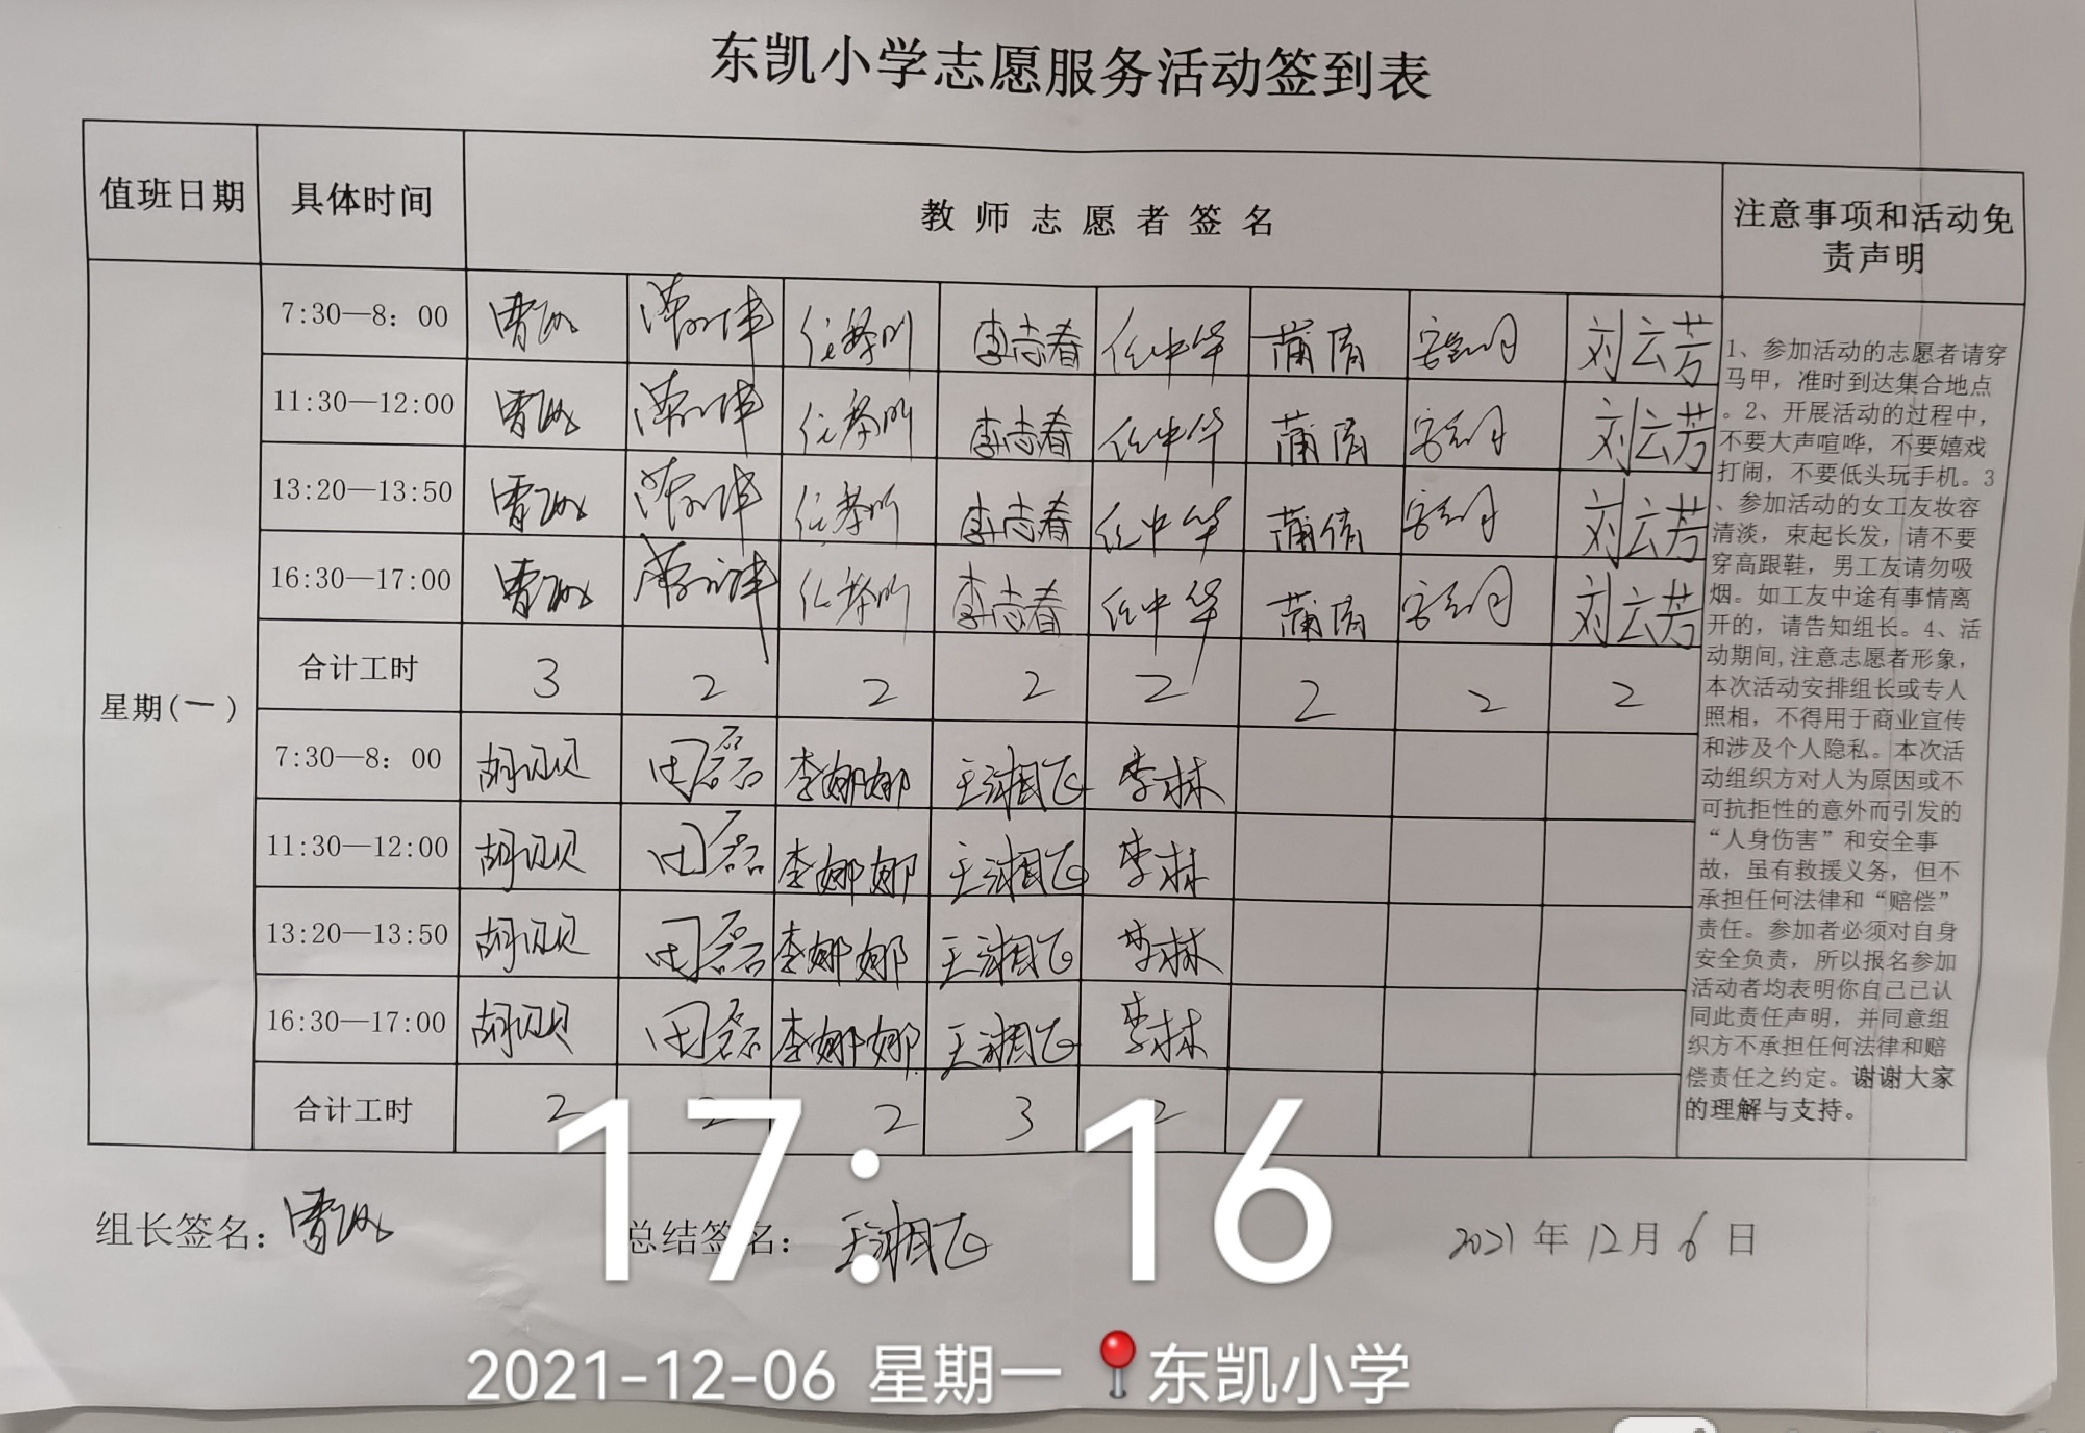 东凯小学志愿服务活动签到表
值班日期 具体时间 教师志愿者签名 注意事项和活动免
责声明
星期(一)
7:30—8：00 李志春 任中华 蒲倩 刘云芳
11:30—12:00 李志春 任中华 蒲倩 刘云芳
13:20—13:50 李志春 任中华 蒲倩 刘云芳
16:30—17:00 李志春 任中华 蒲倩 刘云芳
合计工时 3 2 2 2 2 2 2 2
7:30—8：00 胡贝贝 田磊 李娜娜 王湘飞 李林
11:30—12:00 胡贝贝 田磊 李娜娜 王湘飞 李林
13:20—13:50 胡贝贝 田磊 李娜娜 王湘飞 李林
16:30—17:00 胡贝贝 田磊 李娜娜 王湘飞 李林
合计工时 2 2 2 3 2
1、参加活动的志愿者请穿
马甲，准时到达集合地点
。2、开展活动的过程中，
不要大声喧哗，不要嬉戏
打闹，不要低头玩手机。3
、参加活动的女工友妆容
清淡，束起长发，请不要
穿高跟鞋，男工友请勿吸
烟。如工友中途有事情离
开的，请告知组长。4、活
动期间,注意志愿者形象，
本次活动安排组长或专人
照相，不得用于商业宣传
和涉及个人隐私。本次活
动组织方对人为原因或不
可抗拒性的意外而引发的
“人身伤害”和安全事
故，虽有救援义务，但不
承担任何法律和“赔偿”
责任。参加者必须对自身
安全负责，所以报名参加
活动者均表明你自己已认
同此责任声明，并同意组
织方不承担任何法律和赔
偿责任之约定。谢谢大家
的理解与支持。
组长签名： 总结签名： 王湘飞 2021年12月6日
17:16
2021-12-06 星期一 东凯小学